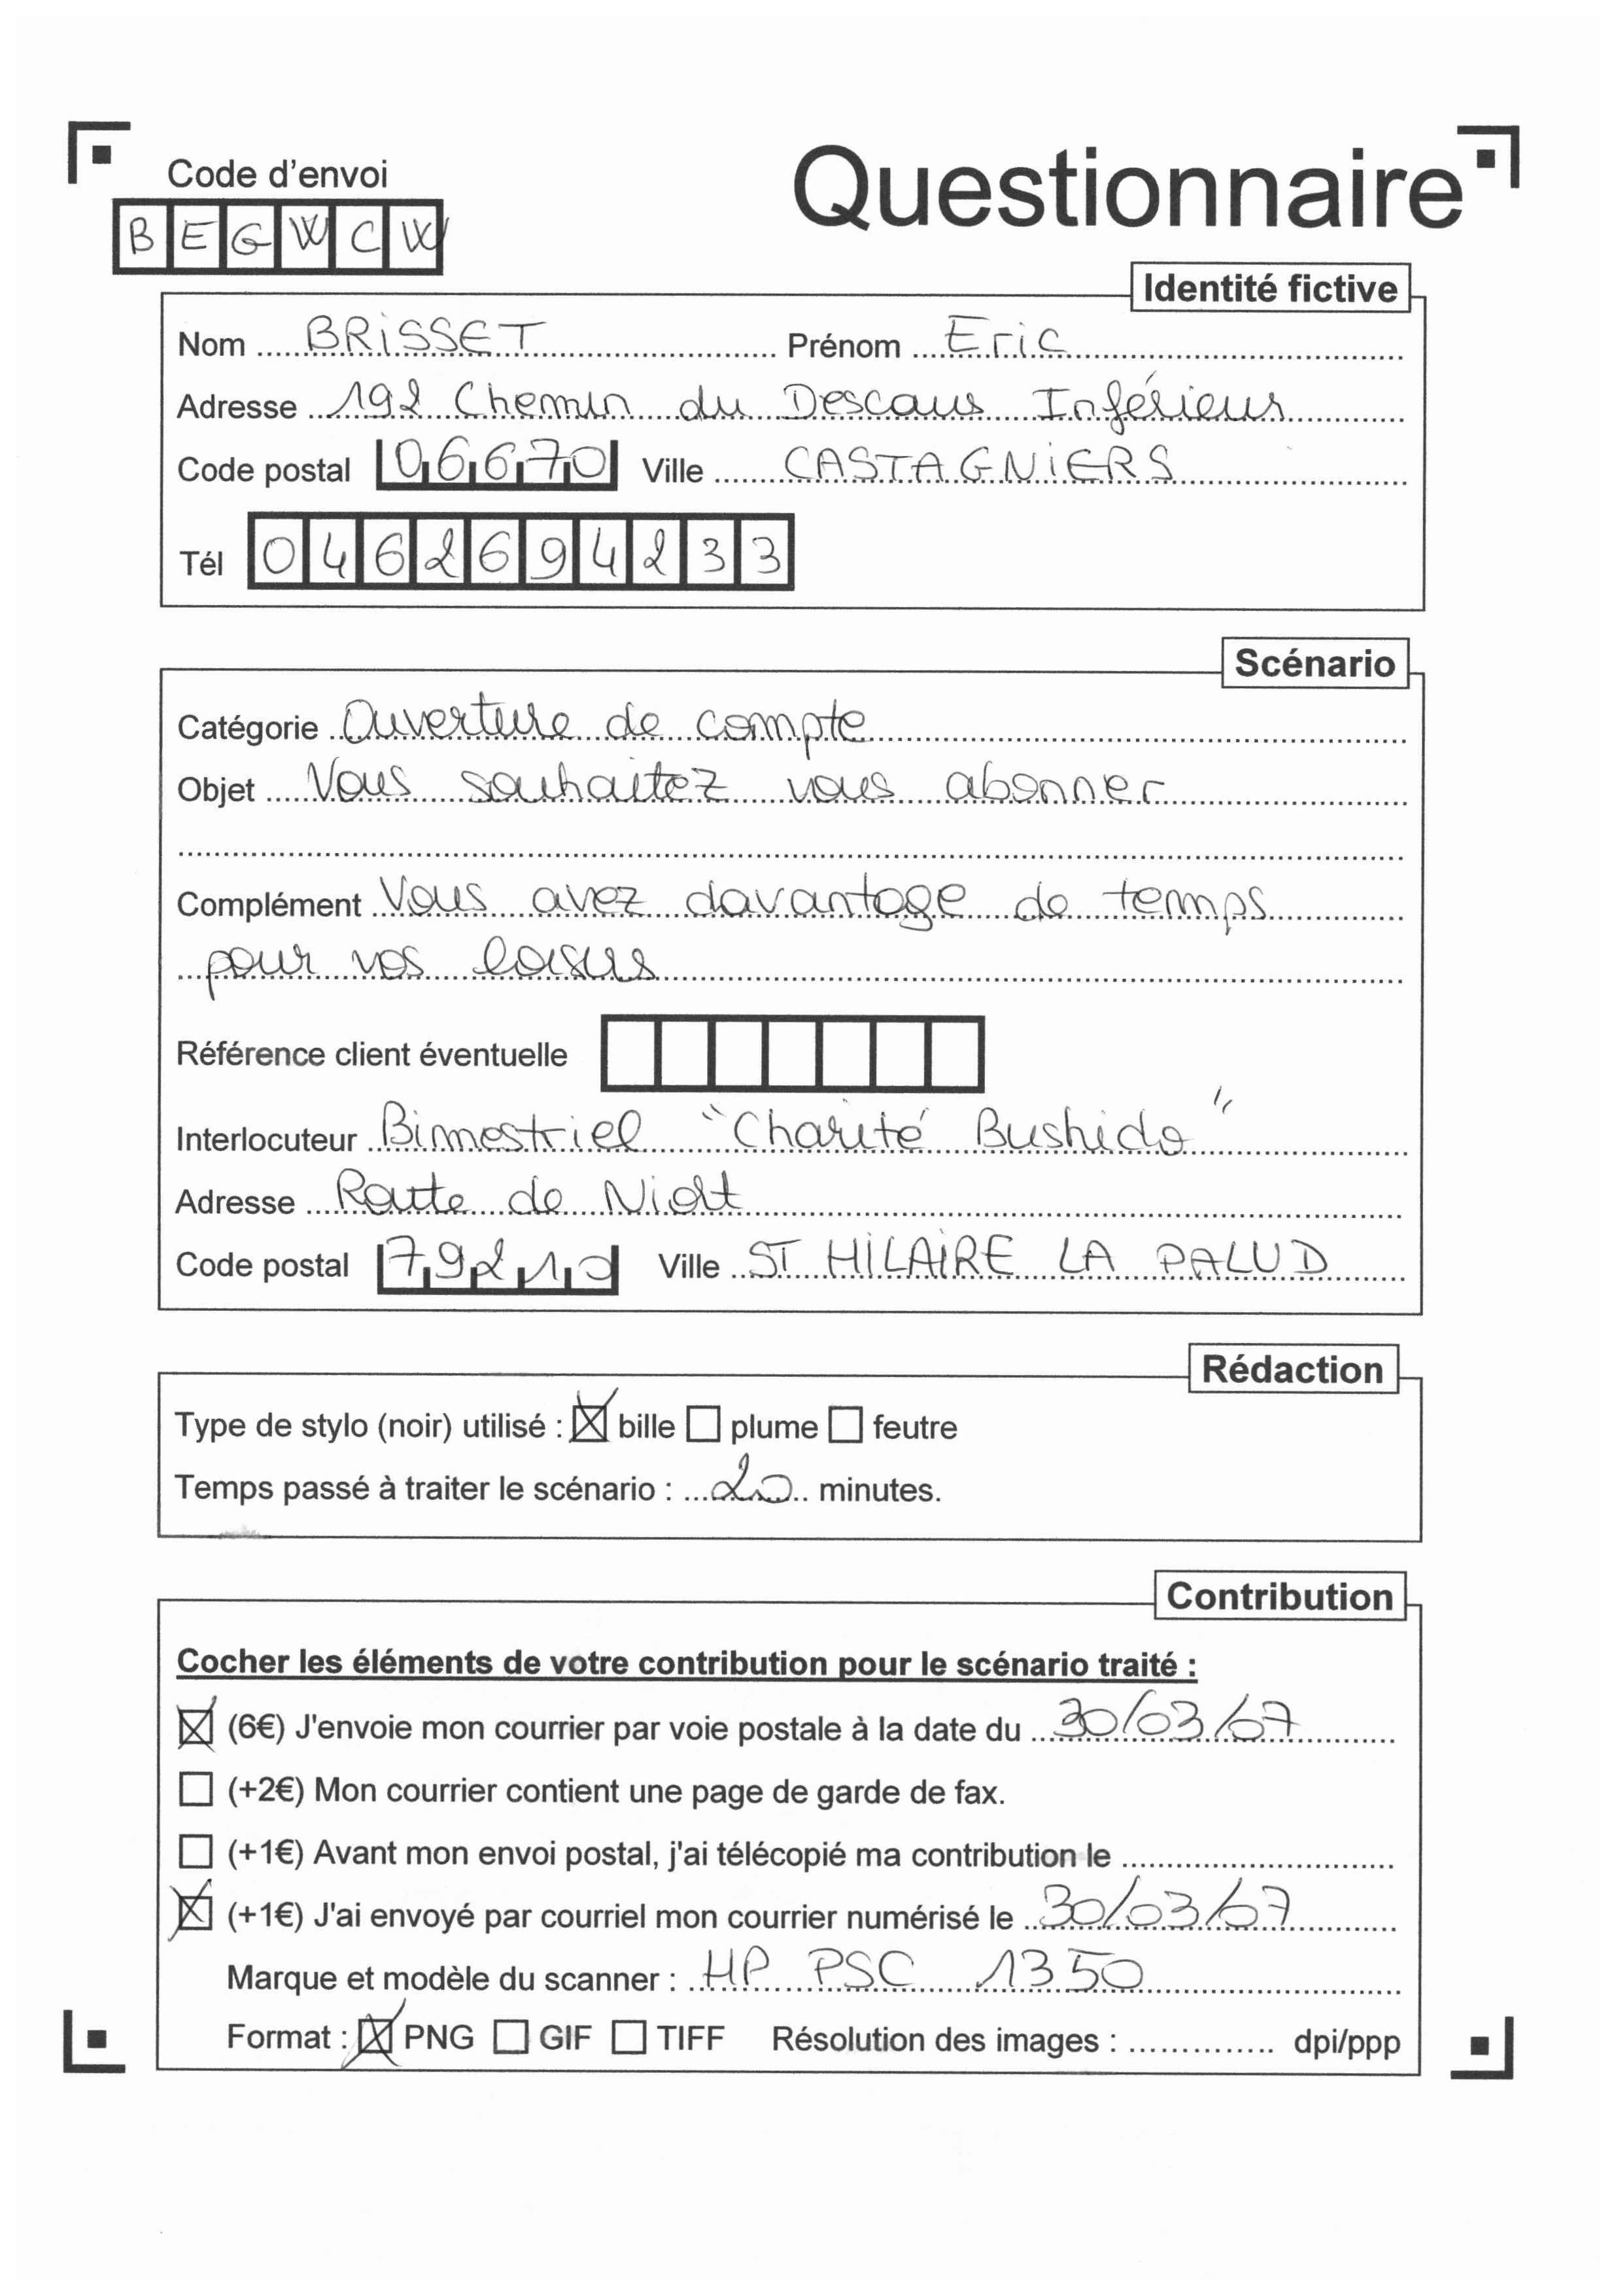 Code d'envoi
Questionnaire
BEGWCW
Identité fictive
Nom BRISSET Prénom Eric
Adresse 192 Chemin du Descaus Inférieur
Code postal 06670 Ville CASTAGNIERS
Tél 0462694233
Scénario
Catégorie Ouverture de compte
Objet Vous souhaitez vous abonner
Complément Vous avez davantage de temps
pour vos loisirs
Référence client éventuelle
Interlocuteur Bimestriel "Charité Bushido"
Adresse Route de Niort
Code postal 79210 Ville ST HILAIRE LA PALUD
Rédaction
Type de stylo (noir) utilisé : ☒ bille ☐ plume ☐ feutre
Temps passé à traiter le scénario : 20 minutes.
Contribution
Cocher les éléments de votre contribution pour le scénario traité :
☒ (6€) J'envoie mon courrier par voie postale à la date du 30/03/07
☐ (+2€) Mon courrier contient une page de garde de fax.
☐ (+1€) Avant mon envoi postal, j'ai télécopié ma contribution le
☒ (+1€) J'ai envoyé par courriel mon courrier numérisé le 30/03/07
Marque et modèle du scanner : HP PSC 1350
Format : ☒ PNG ☐ GIF ☐ TIFF Résolution des images : .............. dpi/ppp